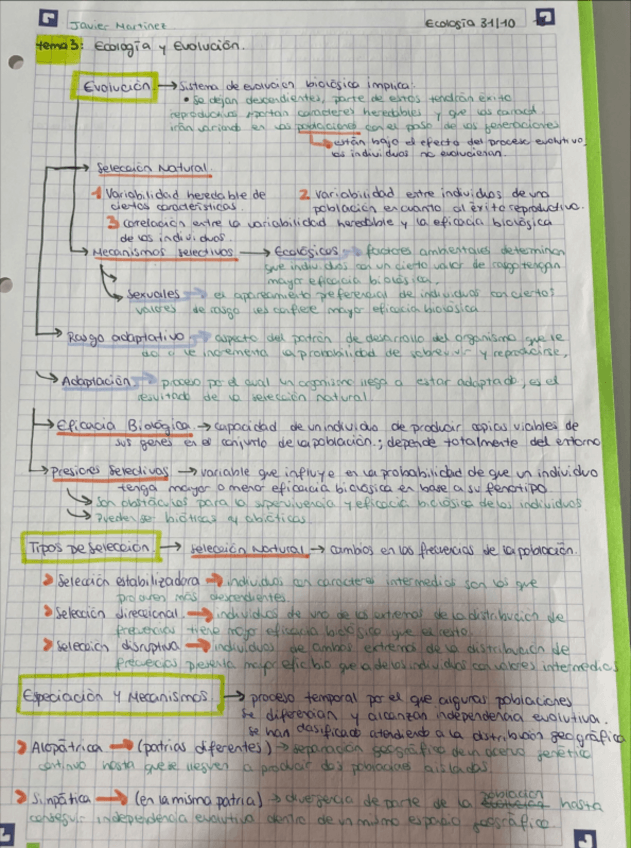 Javier Martínez
Ecología 31/10
tema 3: Ecología y Evolución.
Evolución → Sistema de evolución biológica implica:
• Se dejan descendientes, parte de estos tendrán éxito
reproductivo, aportan caracteres heredables y que los caract.
irán variando en las poblaciones con el paso de las generaciones
↳ están bajo el efecto del proceso evolutivo,
los individuos no evolucionan.
→ Selección Natural.
1 Variabilidad heredable de
ciertas características.
2 variabilidad entre individuos de una
población en cuanto al éxito reproductivo.
3 correlación entre la variabilidad heredable y la eficacia biológica
de los individuos
→ Mecanismos selectivos → Ecológicos → factores ambientales determinan
que individuos con un cierto valor de rasgo tengan
mayor eficacia biológica.
↳ Sexuales → el apareamiento preferencial de individuos con ciertos
valores de rasgo les confiere mayor eficacia biológica
→ Rasgo adaptativo → aspecto del patrón de desarrollo del organismo que le
incrementa la probabilidad de sobrevivir y reproducirse.
↳ Adaptación → proceso por el cual un organismo llega a estar adaptado, es el
resultado de la selección natural.
→ Eficacia Biológica → capacidad de un individuo de producir copias viables de
sus genes en el conjunto de la población.; depende totalmente del entorno
→ Presiones Selectivas → variable que influye en la probabilidad de que un individuo
tenga mayor o menor eficacia biológica en base a su fenotipo.
↳ Son obstáculos para la supervivencia y eficacia biológica de los individuos
↳ Pueden ser bióticas y abióticas.
Tipos De Selección. → Selección Natural → cambios en las frecuencias de la población.
> Selección estabilizadora → individuos con caracteres intermedios son los que
producen más descendientes.
> Selección direccional → individuos de uno de los extremos de la distribución de
frecuencias tiene mayor eficacia biológica que el resto.
> Selección disruptiva → individuos de ambos extremos de la distribución de
frecuencias presenta mayor efic bio que a de los individuos con valores intermedios
Especiación Y Mecanismos → proceso temporal por el que algunas poblaciones
se diferencian y alcanzan independencia evolutiva.
Se han clasificado atendiendo a la distribución geográfica
> Alopátrica → (patrias diferentes) → separación geográfica de un acervo genético
continuo hasta que se lleguen a producir dos poblaciones aisladas.
> Simpátrica → (en la misma patria) → divergencia de parte de la población hasta
conseguir independencia evolutiva dentro de un mismo espacio geográfico.